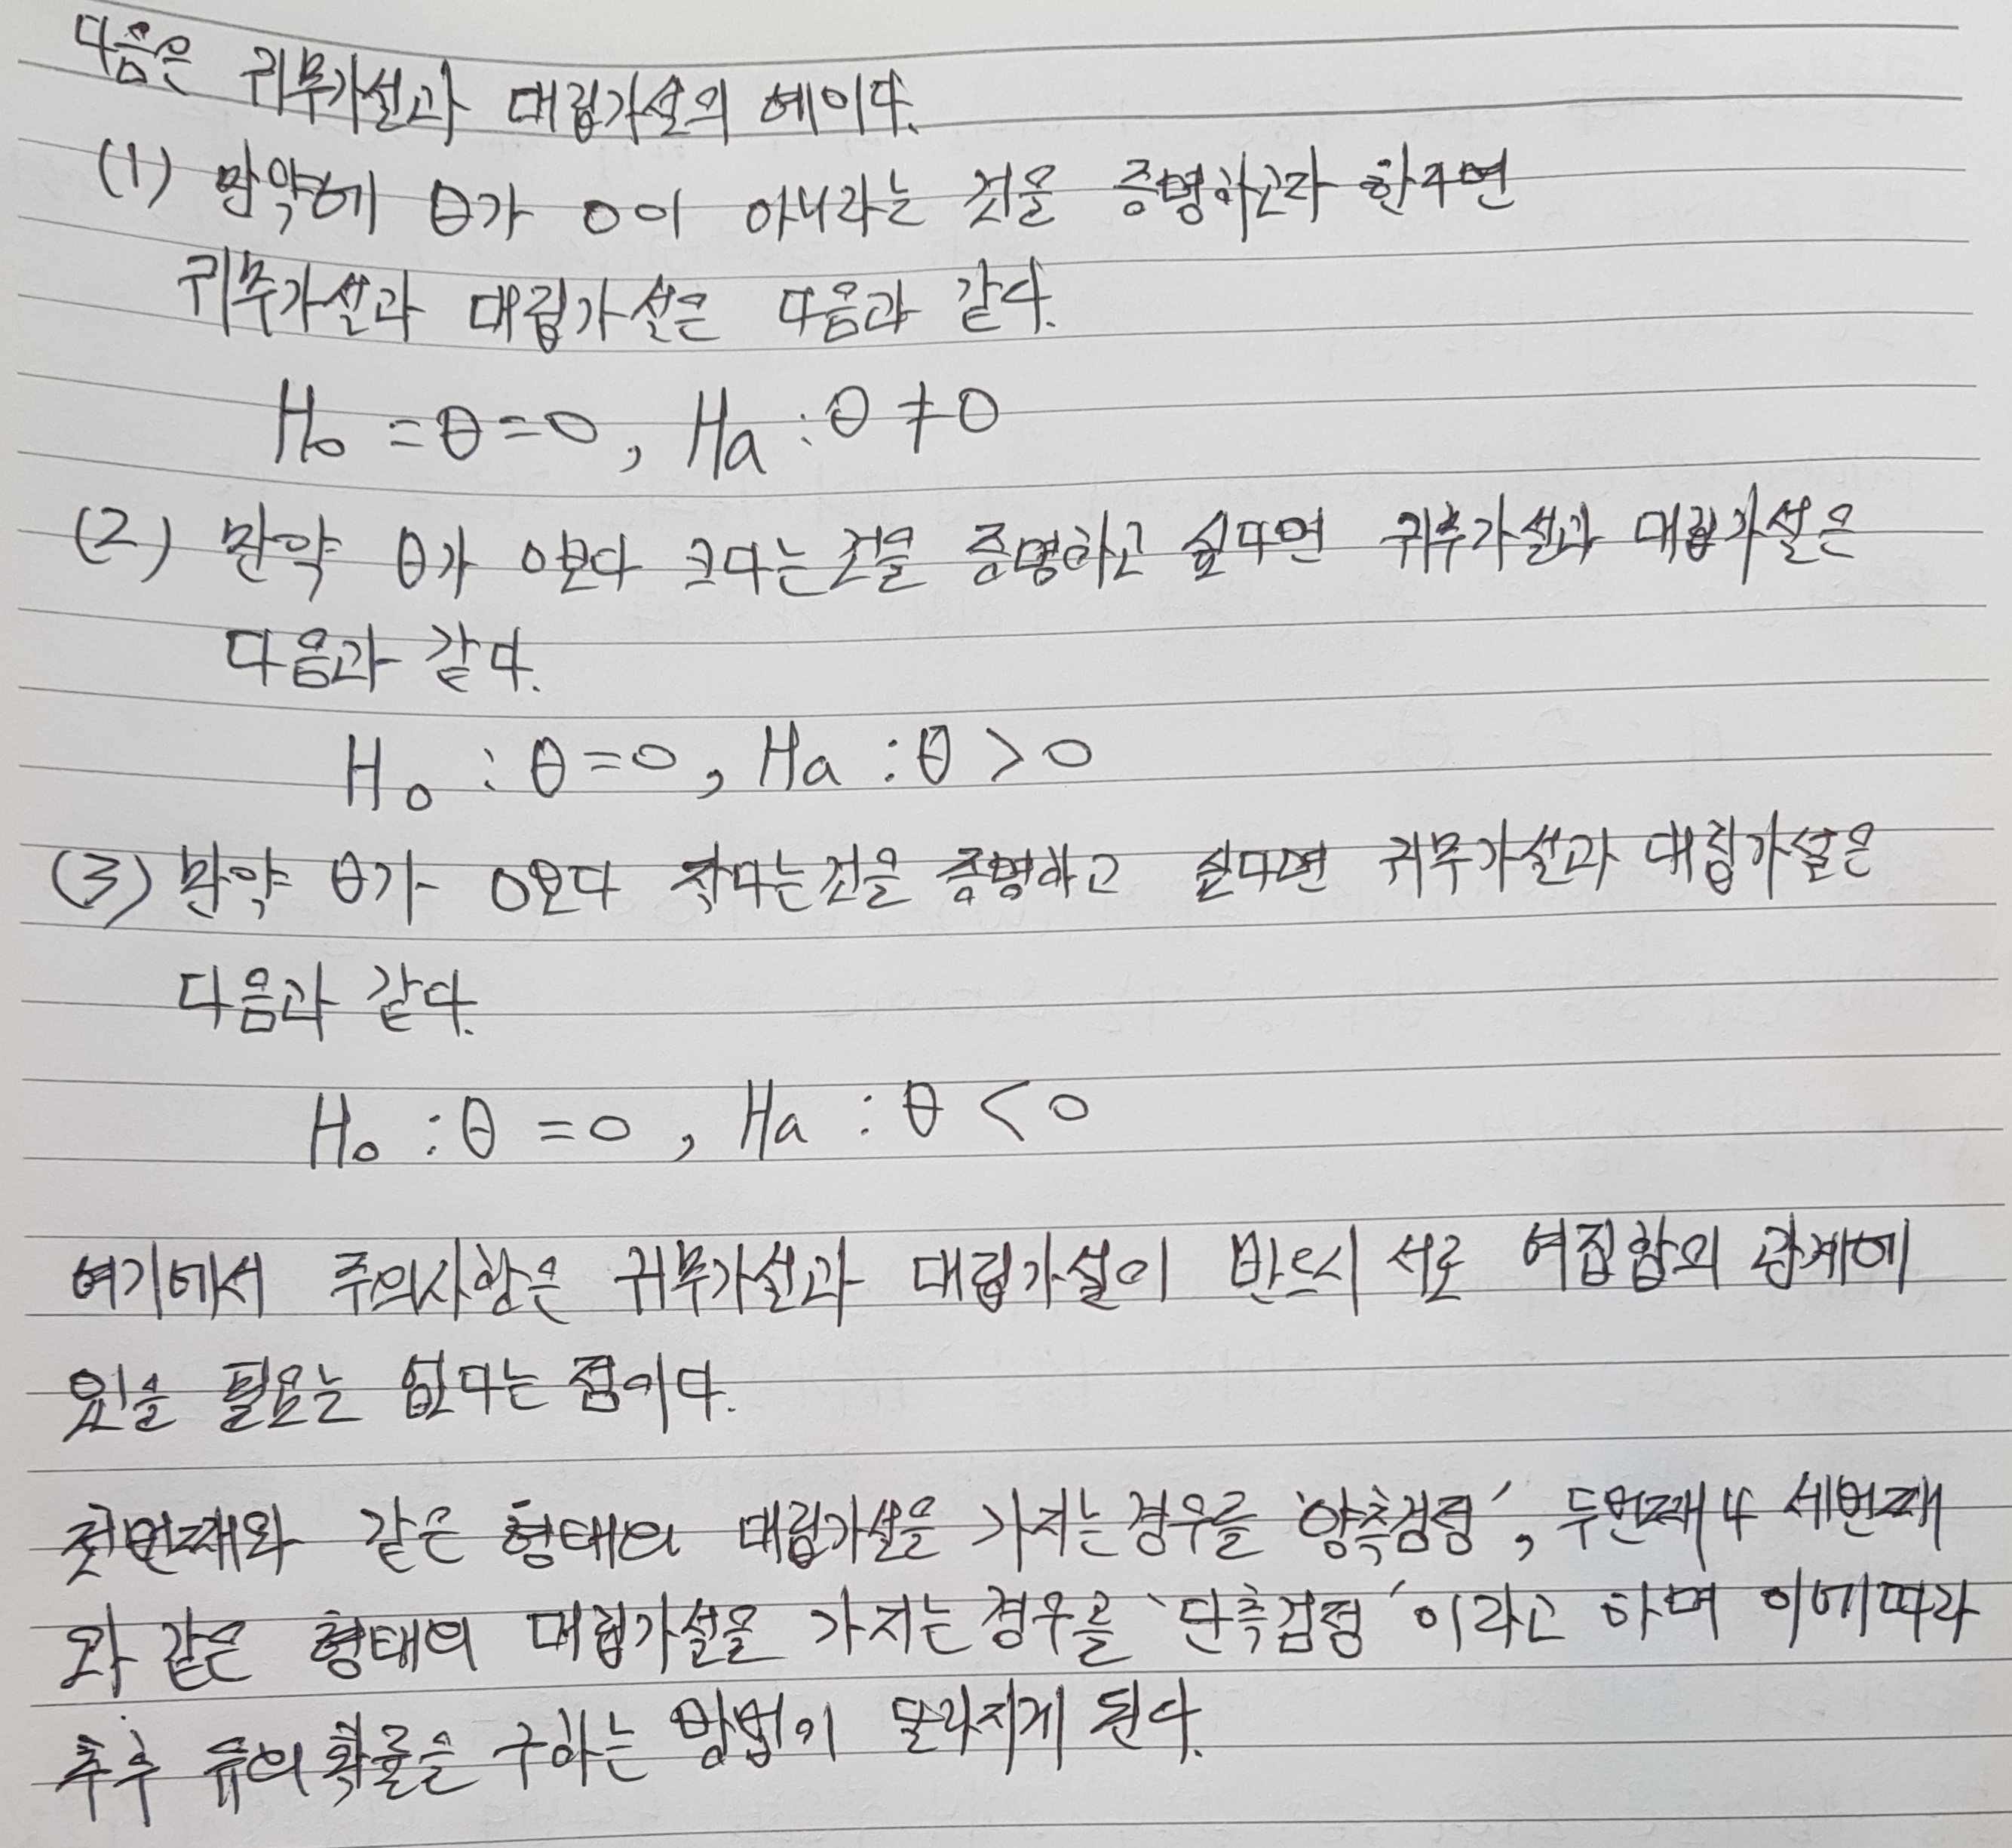 다음은 귀무가설과 대립가설의 예이다.
(1) 만약에 θ가 0이 아니라는 것을 증명하고자 한다면
귀무가설과 대립가설은 다음과 같다.
H₀ = θ = 0, Ha : θ ≠ 0
(2) 만약 θ가 0보다 크다는 것을 증명하고 싶다면 귀무가설과 대립가설은
다음과 같다.
H₀ : θ = 0, Ha : θ > 0
(3) 만약 θ가 0보다 작다는 것을 증명하고 싶다면 귀무가설과 대립가설은
다음과 같다.
H₀ : θ = 0, Ha : θ < 0
여기에서 주의사항은 귀무가설과 대립가설이 반드시 서로 여집합의 관계에
있을 필요는 없다는 점이다.
첫번째와 같은 형태의 대립가설을 가지는 경우를 '양측검정', 두번째나 세번째
와 같은 형태의 대립가설을 가지는 경우를 '단측검정'이라고 하며 이에 따라
추후 유의확률을 구하는 방법이 달라지게 된다.